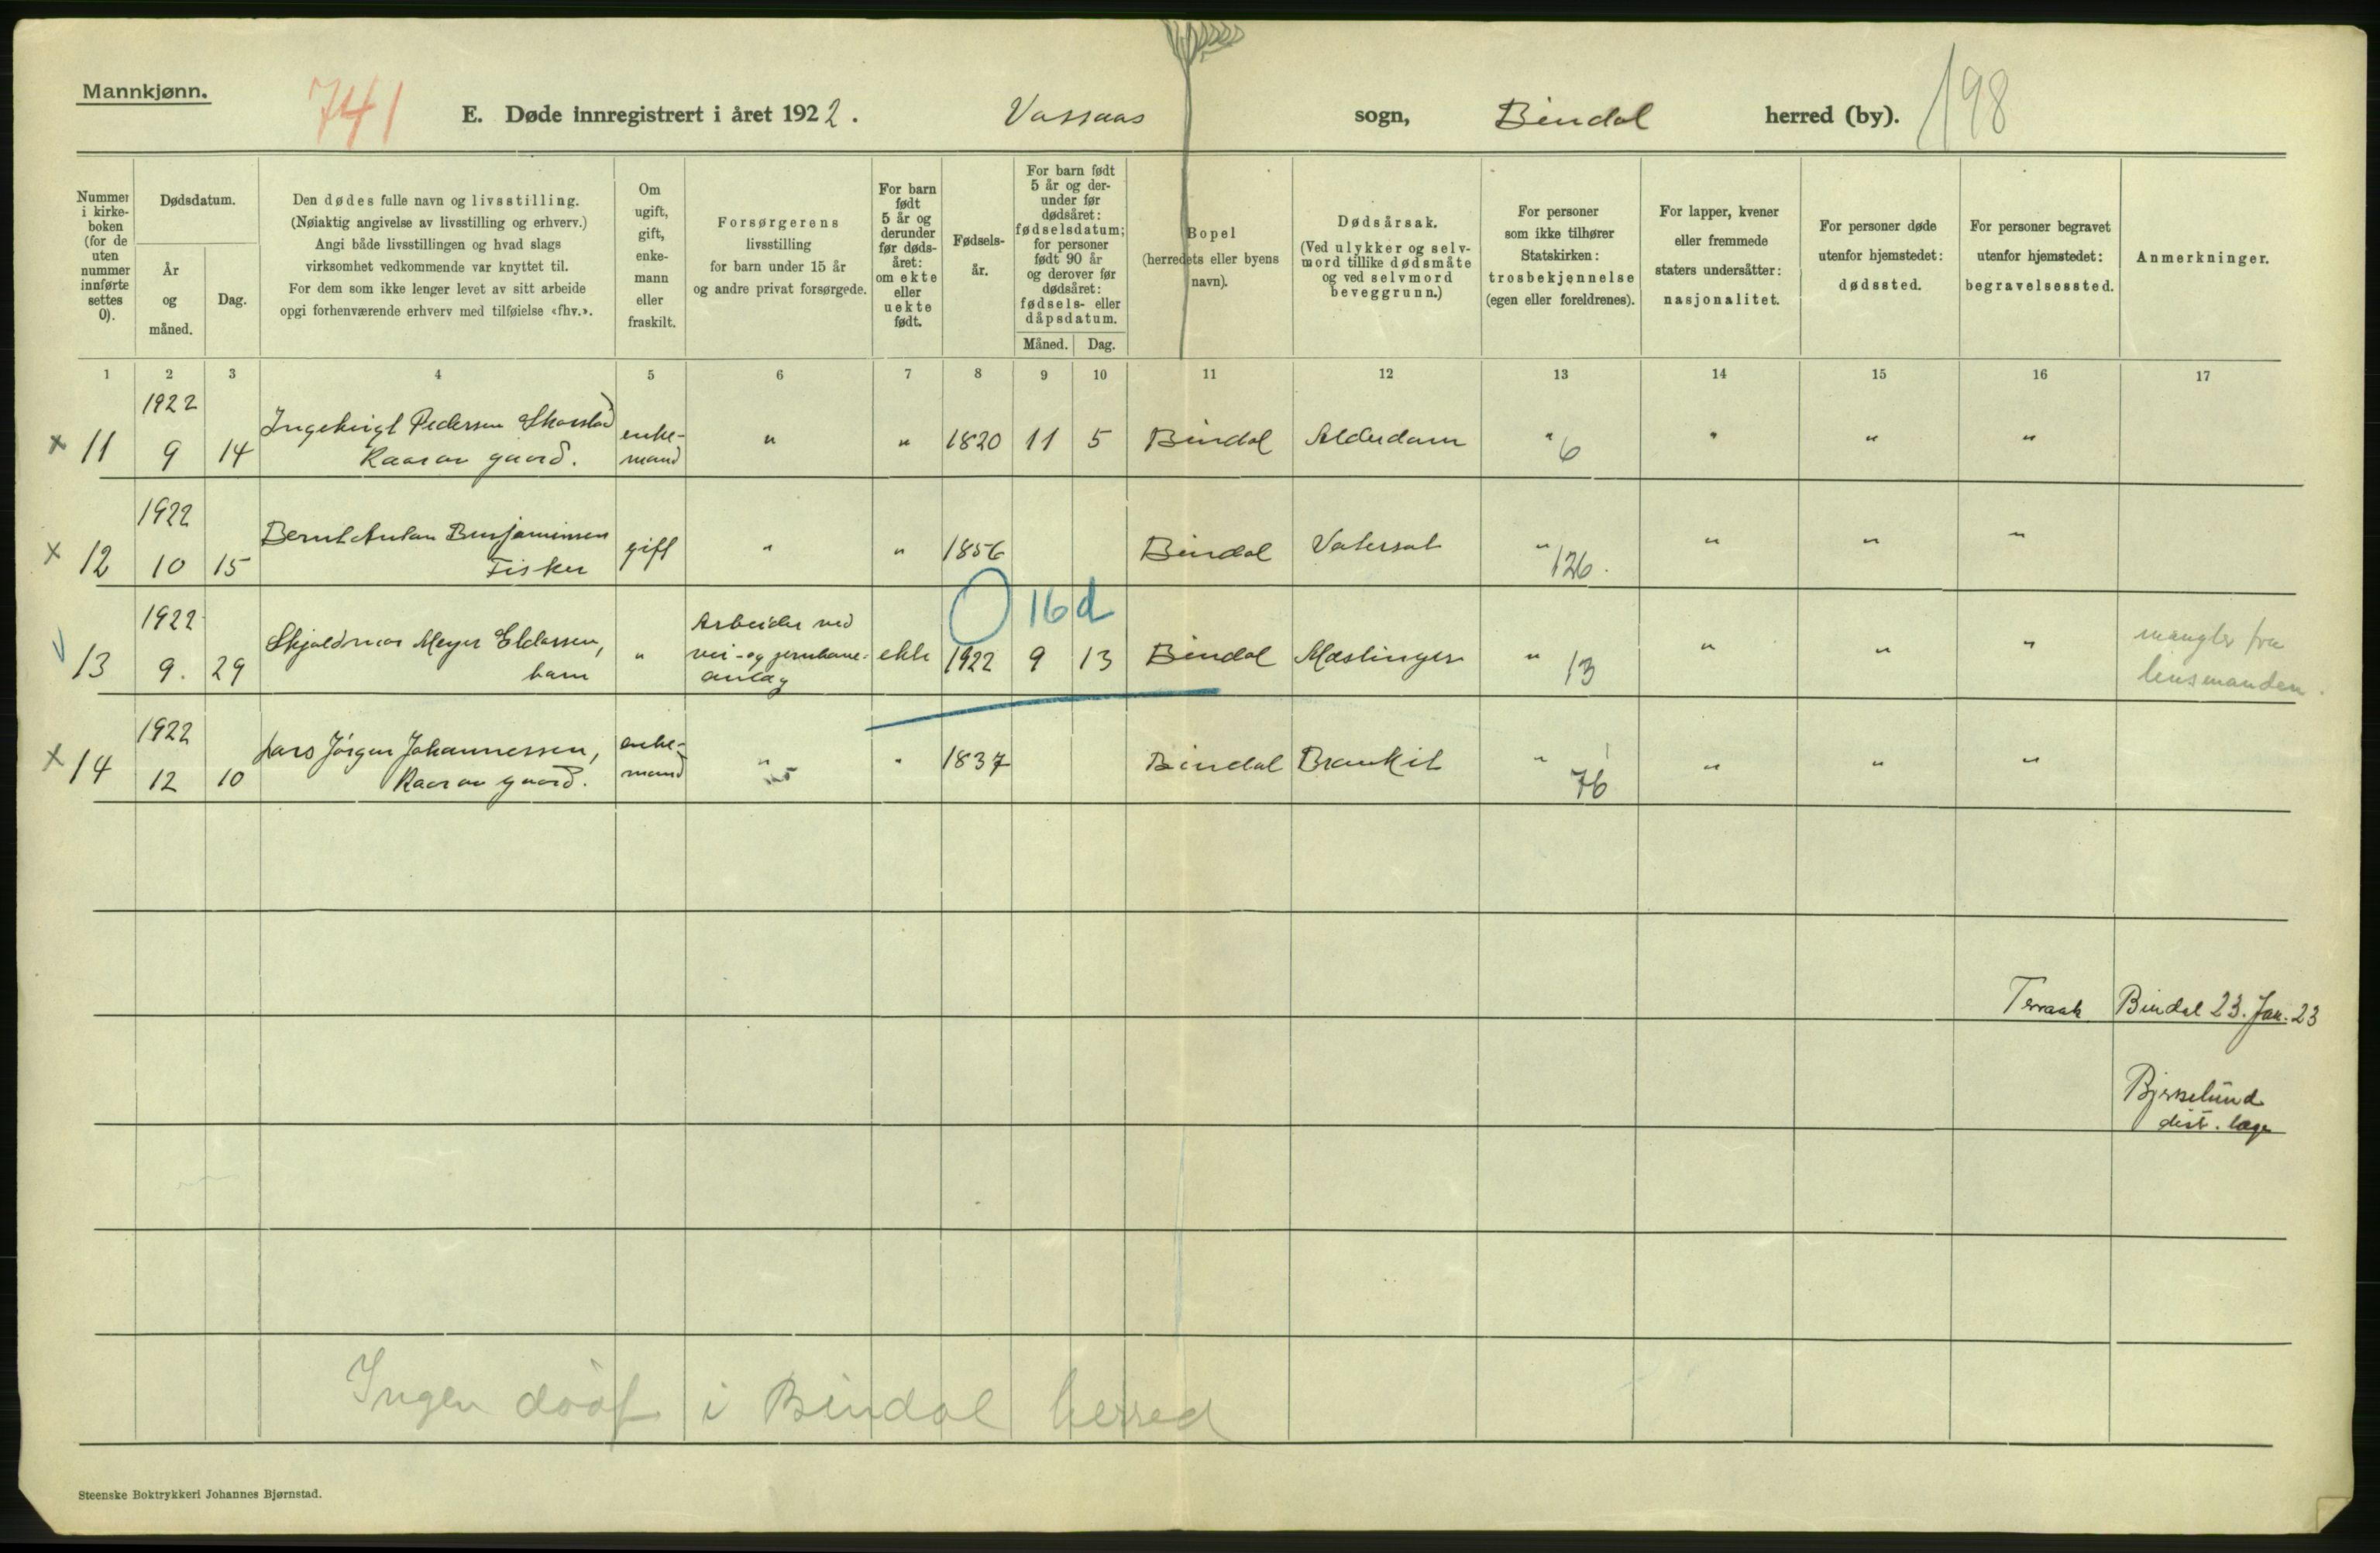 Mannkjønn.
741
E. Døde innregistrert i året 1922. Vassaas sogn, Bindal herred (by). 198
Nummer i kirke-boken (for de uten nummer innførte settes 0).
Dødsdatum.
År og måned.
Dag.
Den dødes fulle navn og livsstilling.
(Nøiaktig angivelse av livsstilling og erhverv.)
Angi både livsstillingen og hvad slags
virksomhet vedkommende var knyttet til.
For dem som ikke lenger levet av sitt arbeide
opgi forhenværende erhverv med tilføielse «fhv.».
Om ugift, gift, enke-mann eller fraskilt.
Forsørgerens
livsstilling
for barn under 15 år
og andre privat forsørgede.
For barn født 5 år og derunder før døds-året: om ekte eller uekte født.
Fødsels-år.
For barn født 5 år og der-under før dødsåret: fødselsdatum; for personer født 90 år og derover før dødsåret: fødsels- eller dåpsdatum.
Måned. Dag.
Bopel
(herredets eller byens
navn).
Dødsårsak.
(Ved ulykker og selv-
mord tillike dødsmåte
og ved selvmord
beveggrunn.)
For personer
som ikke tilhører
Statskirken:
trosbekjennelse
(egen eller foreldrenes).
For lapper, kvener
eller fremmede
staters undersåtter:
nasjonalitet.
For personer døde
utenfor hjemstedet:
dødssted.
For personer begravet
utenfor hjemstedet:
begravelsessted.
Anmerkninger.
1 2 3 4 5 6 7 8 9 10 11 12 13 14 15 16 17
1922
x 11 9 14 Pedersen enke-mand " " 1820 11 5 Bindal Alderdom " 6 " " "
Kaarmand gaard.
1922
x 12 10 15 Bernt Anton Benjaminsen gift " " 1856 Bindal " 126. " " "
Fisker
0 16 d
1922
13 9. 29 Skjoldmar Meyer Eldassen, barn " Arbeider ved vei- og jernbane-anlæg ekte 1922 9 13 Bindal Mæslinger " 13 " " " mangler fra lensmanden.
1922
x 14 12 10 Lars Jørgen Johannessen, enke-mand " " 1837 Bindal Brankit " 76 " " "
gaard.
Terraak Bindal 23. Jan. 23
dist. læge
Ingen i Bindal herred
Steenske Boktrykkeri Johannes Bjørnstad.